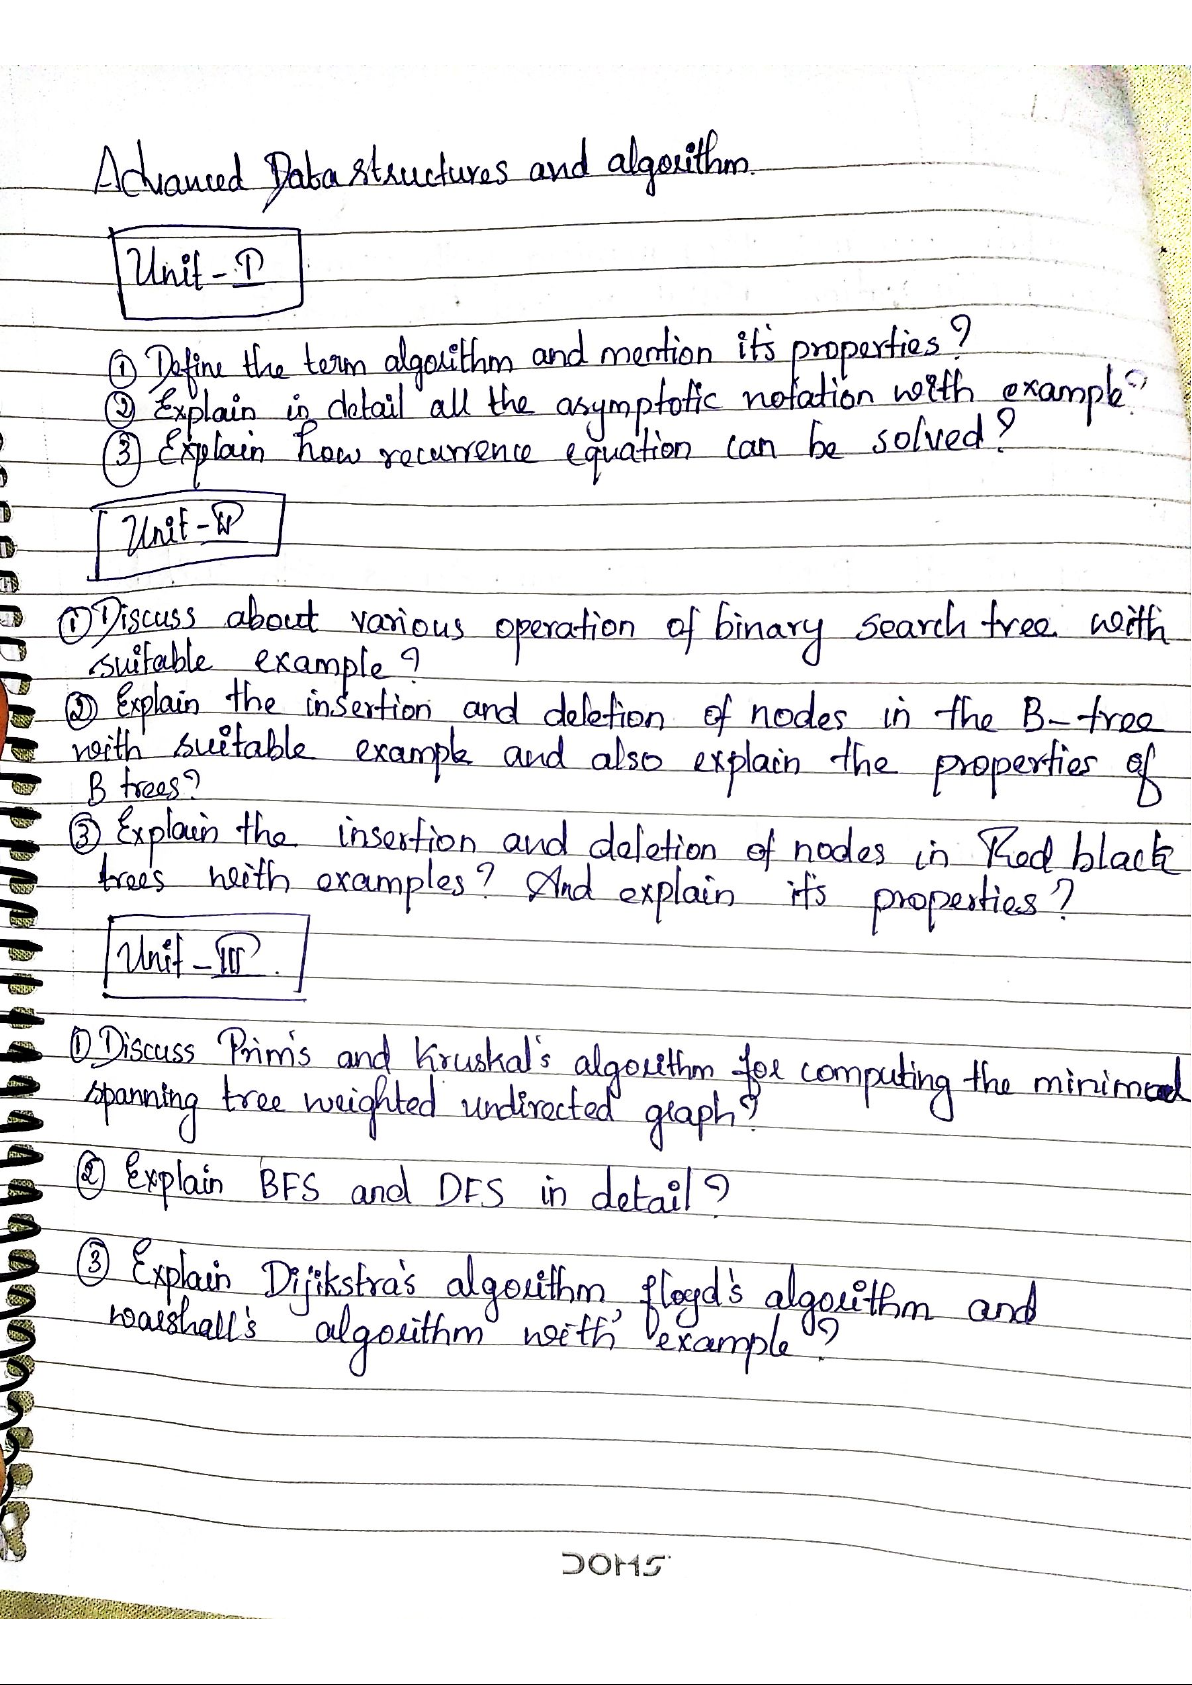 Advanced Data structures and algorithm.
Unit - I
① Define the term algorithm and mention it's properties?
② Explain in detail all the asymptotic notation with example?
③ Explain how recurrence equation can be solved?
Unit - II
① Discuss about various operation of binary search tree with
suitable example?
② Explain the insertion and deletion of nodes in the B-tree
with suitable example and also explain the properties of
B trees?
③ Explain the insertion and deletion of nodes in Red black
trees with examples? And explain it's properties?
Unit - III.
① Discuss Prim's and Kruskal's algorithm for computing the minimal
spanning tree weighted undirected graph?
② Explain BFS and DFS in detail?
③ Explain Dijikstra's algorithm, floyd's algorithm and
warshall's algorithm with example?
DOMS